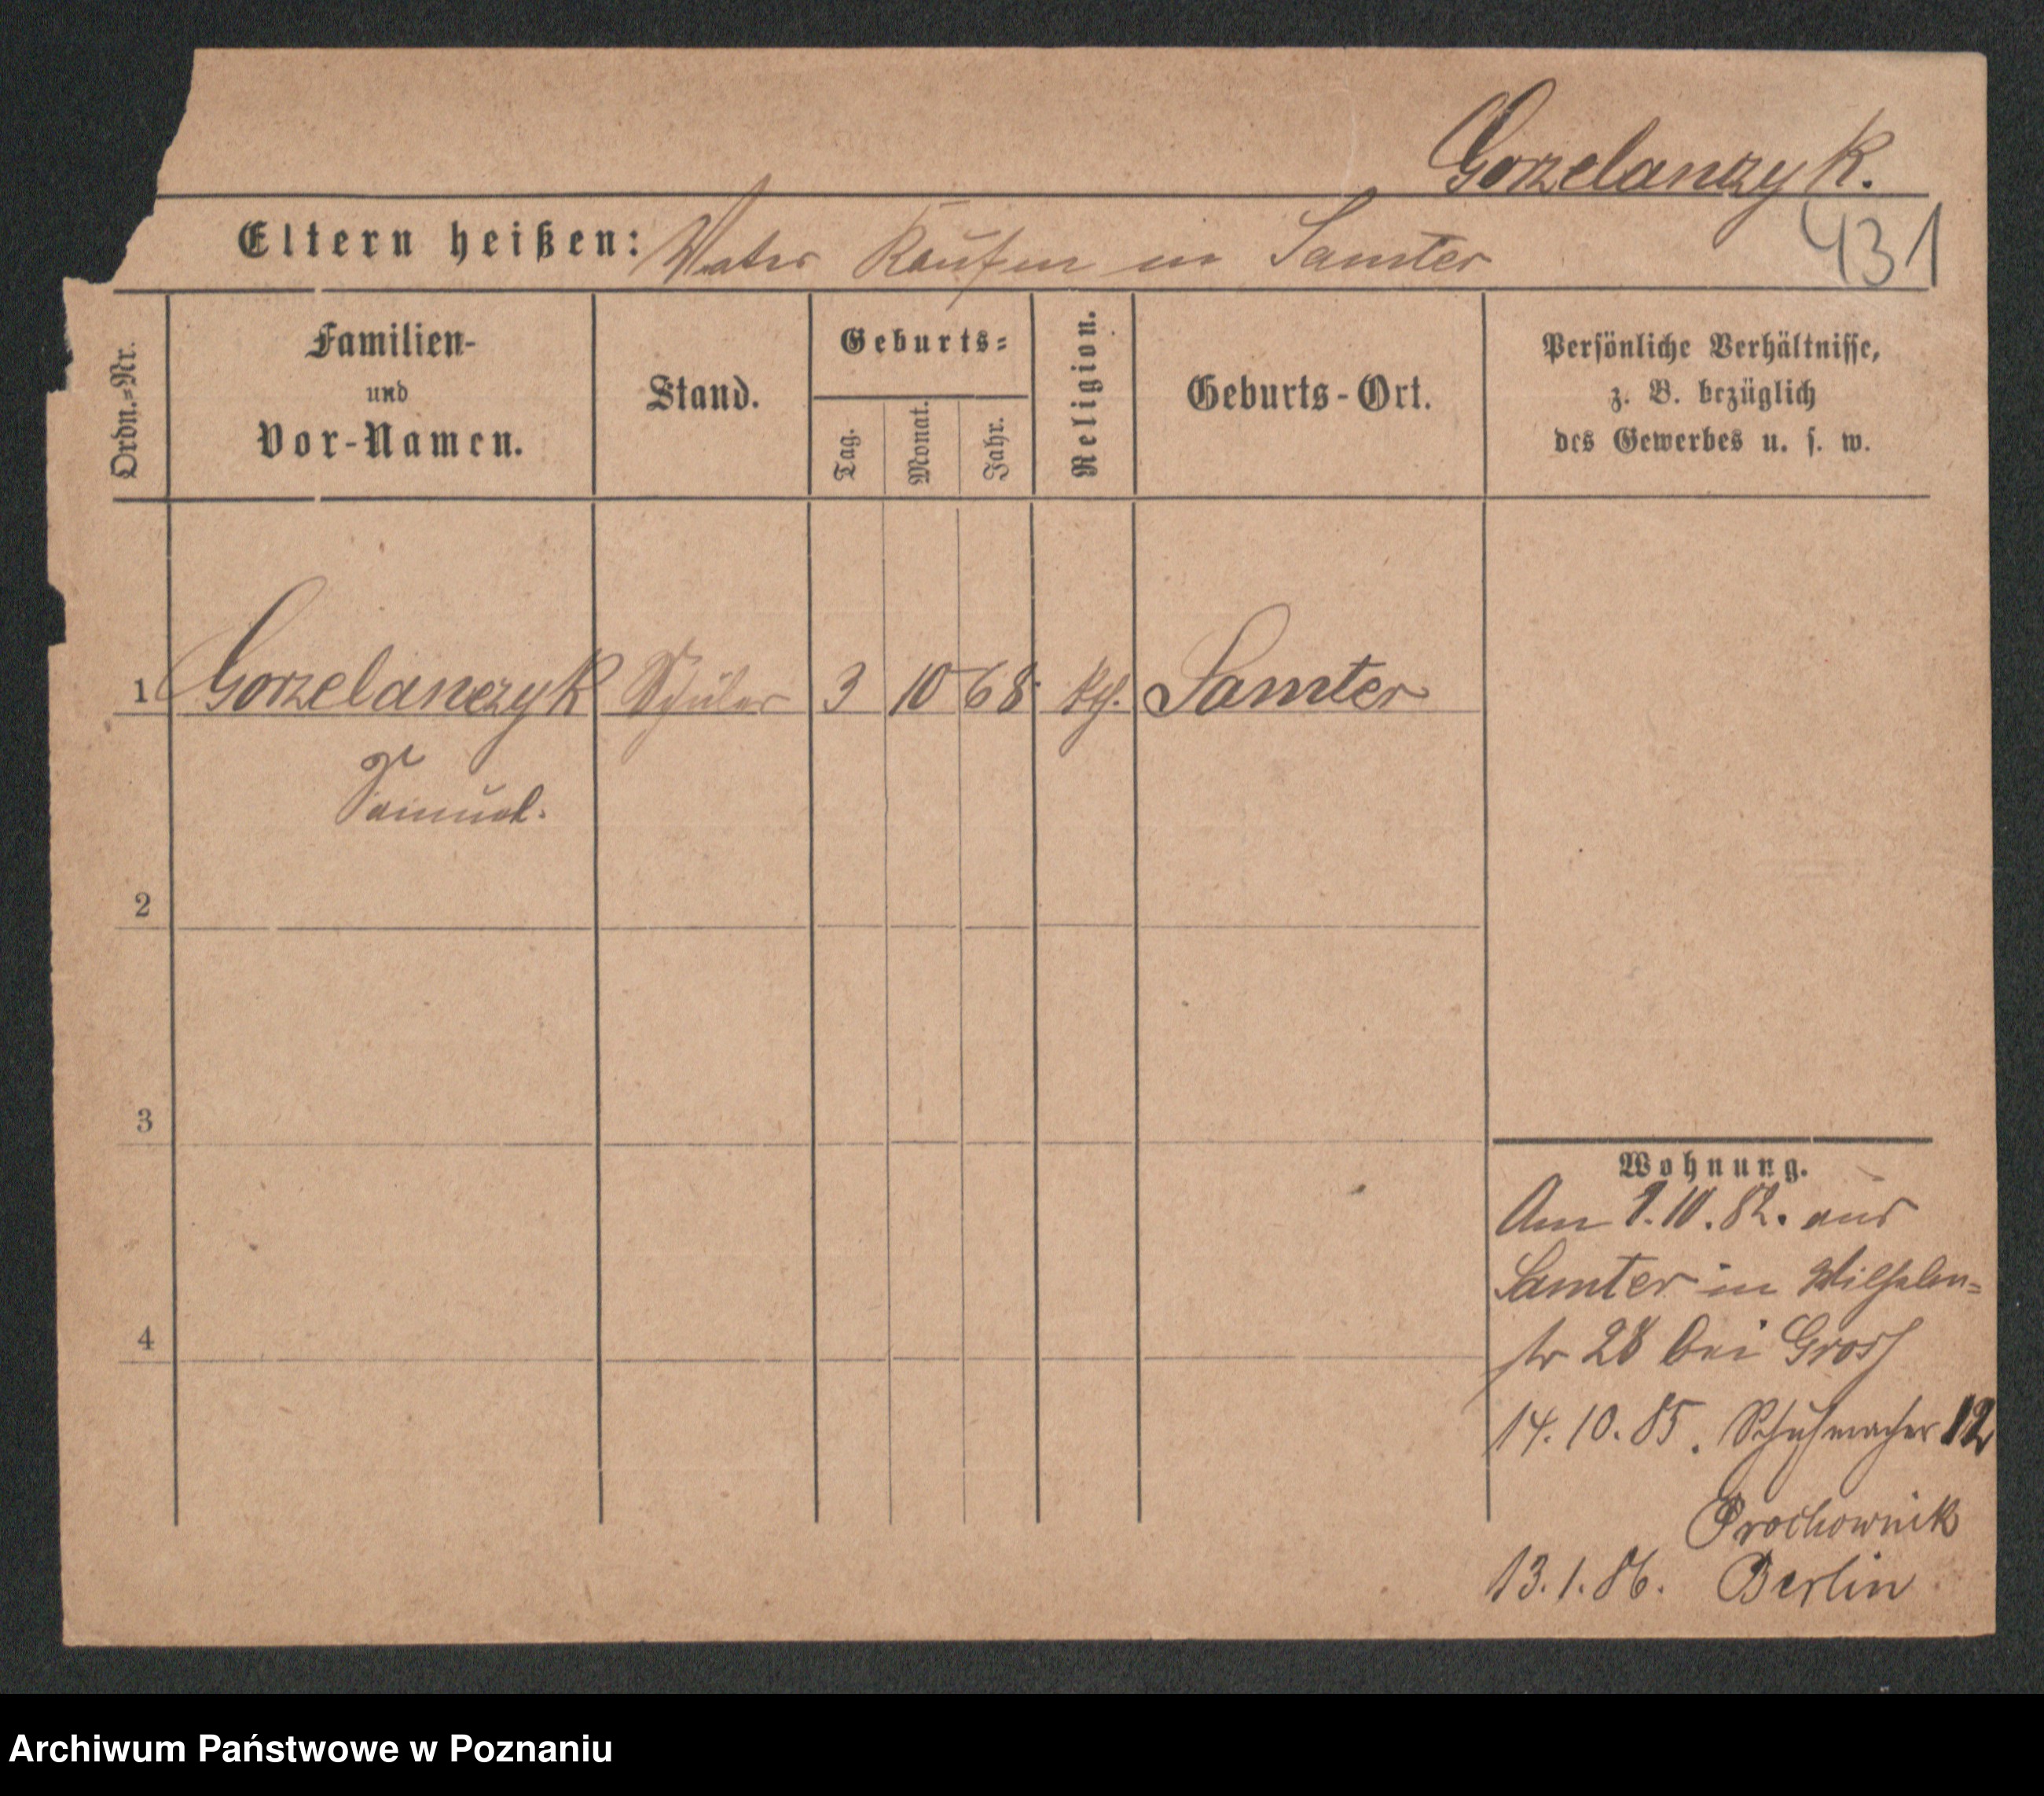 Gorzelanczyk.
431
Eltern heißen: Vater Kaufm in Samter
Ordn.=Nr.
Familien-
und
Vor-Namen.
Stand.
Geburts=
Tag.
Monat.
Jahr.
Religion.
Geburts-Ort.
Persönliche Verhältnisse,
z. B. bezüglich
des Gewerbes u. s. w.
1 Gorzelanczyk Schüler 3 10 68 Samter
Samuel.
2
3
4
Wohnung.
Am 1.10.82. aus
Samter in Wilhelm=
str 28 bei Gross
14.10.85. Schuhmacher 12
Prochownik
13.1.86. Berlin
Archiwum Państwowe w Poznaniu